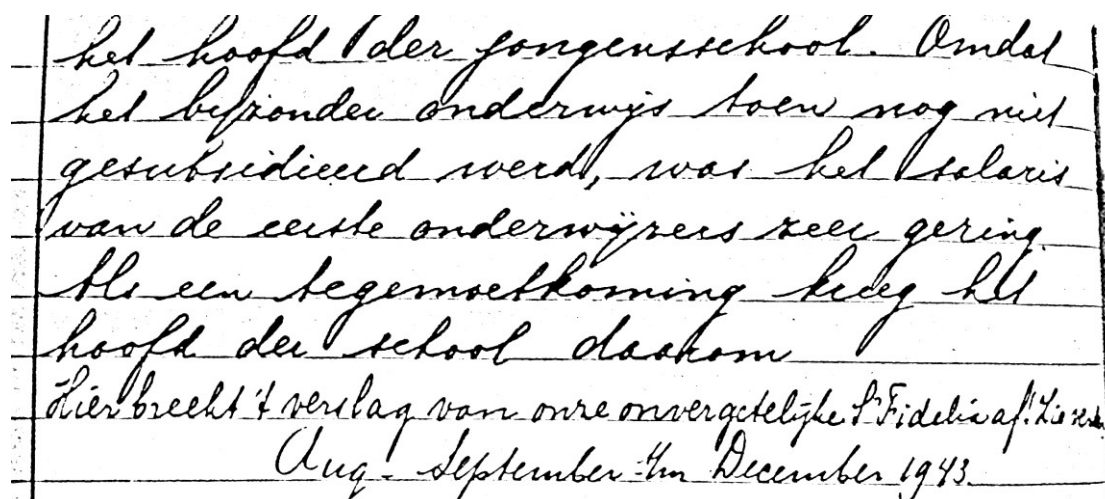 het hoofd der jongensschool. Omdat
het bijzonder onderwijs toen nog niet
gesubsidieerd werd, was het salaris
van de eerste onderwijzers zeer gering.
Als een tegemoetkoming kreeg het
hoofd der school daarom
Hier breekt 't verslag van onze onvergetelijke Sr Fidelia af! Zie
Aug - September t/m December 1943.